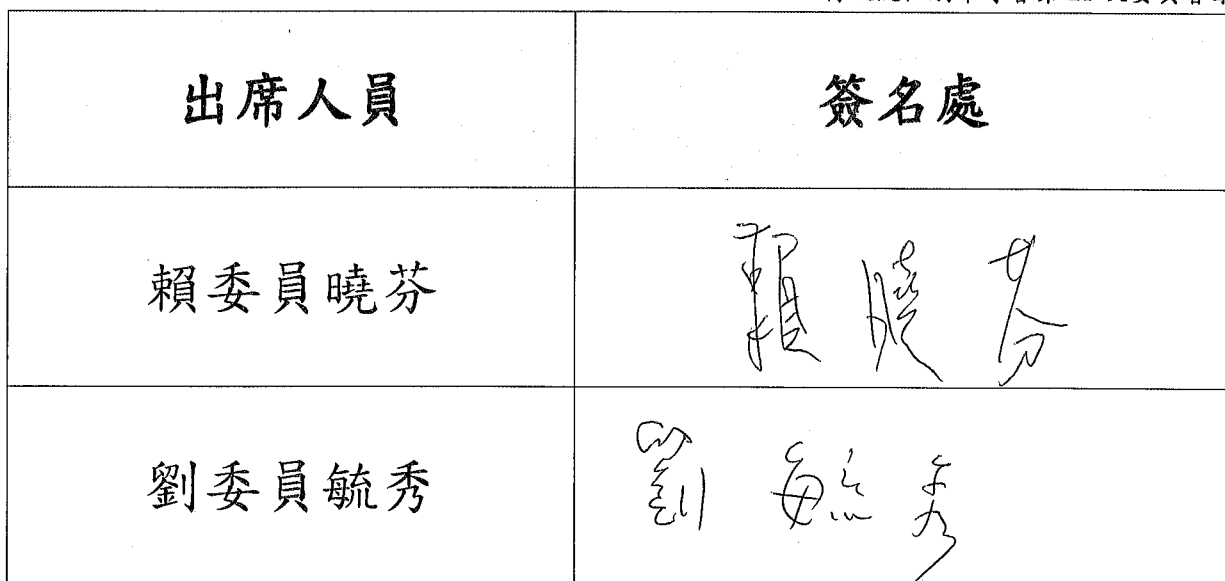 出席人員 簽名處
賴委員曉芬 賴曉芬
劉委員毓秀 劉毓秀